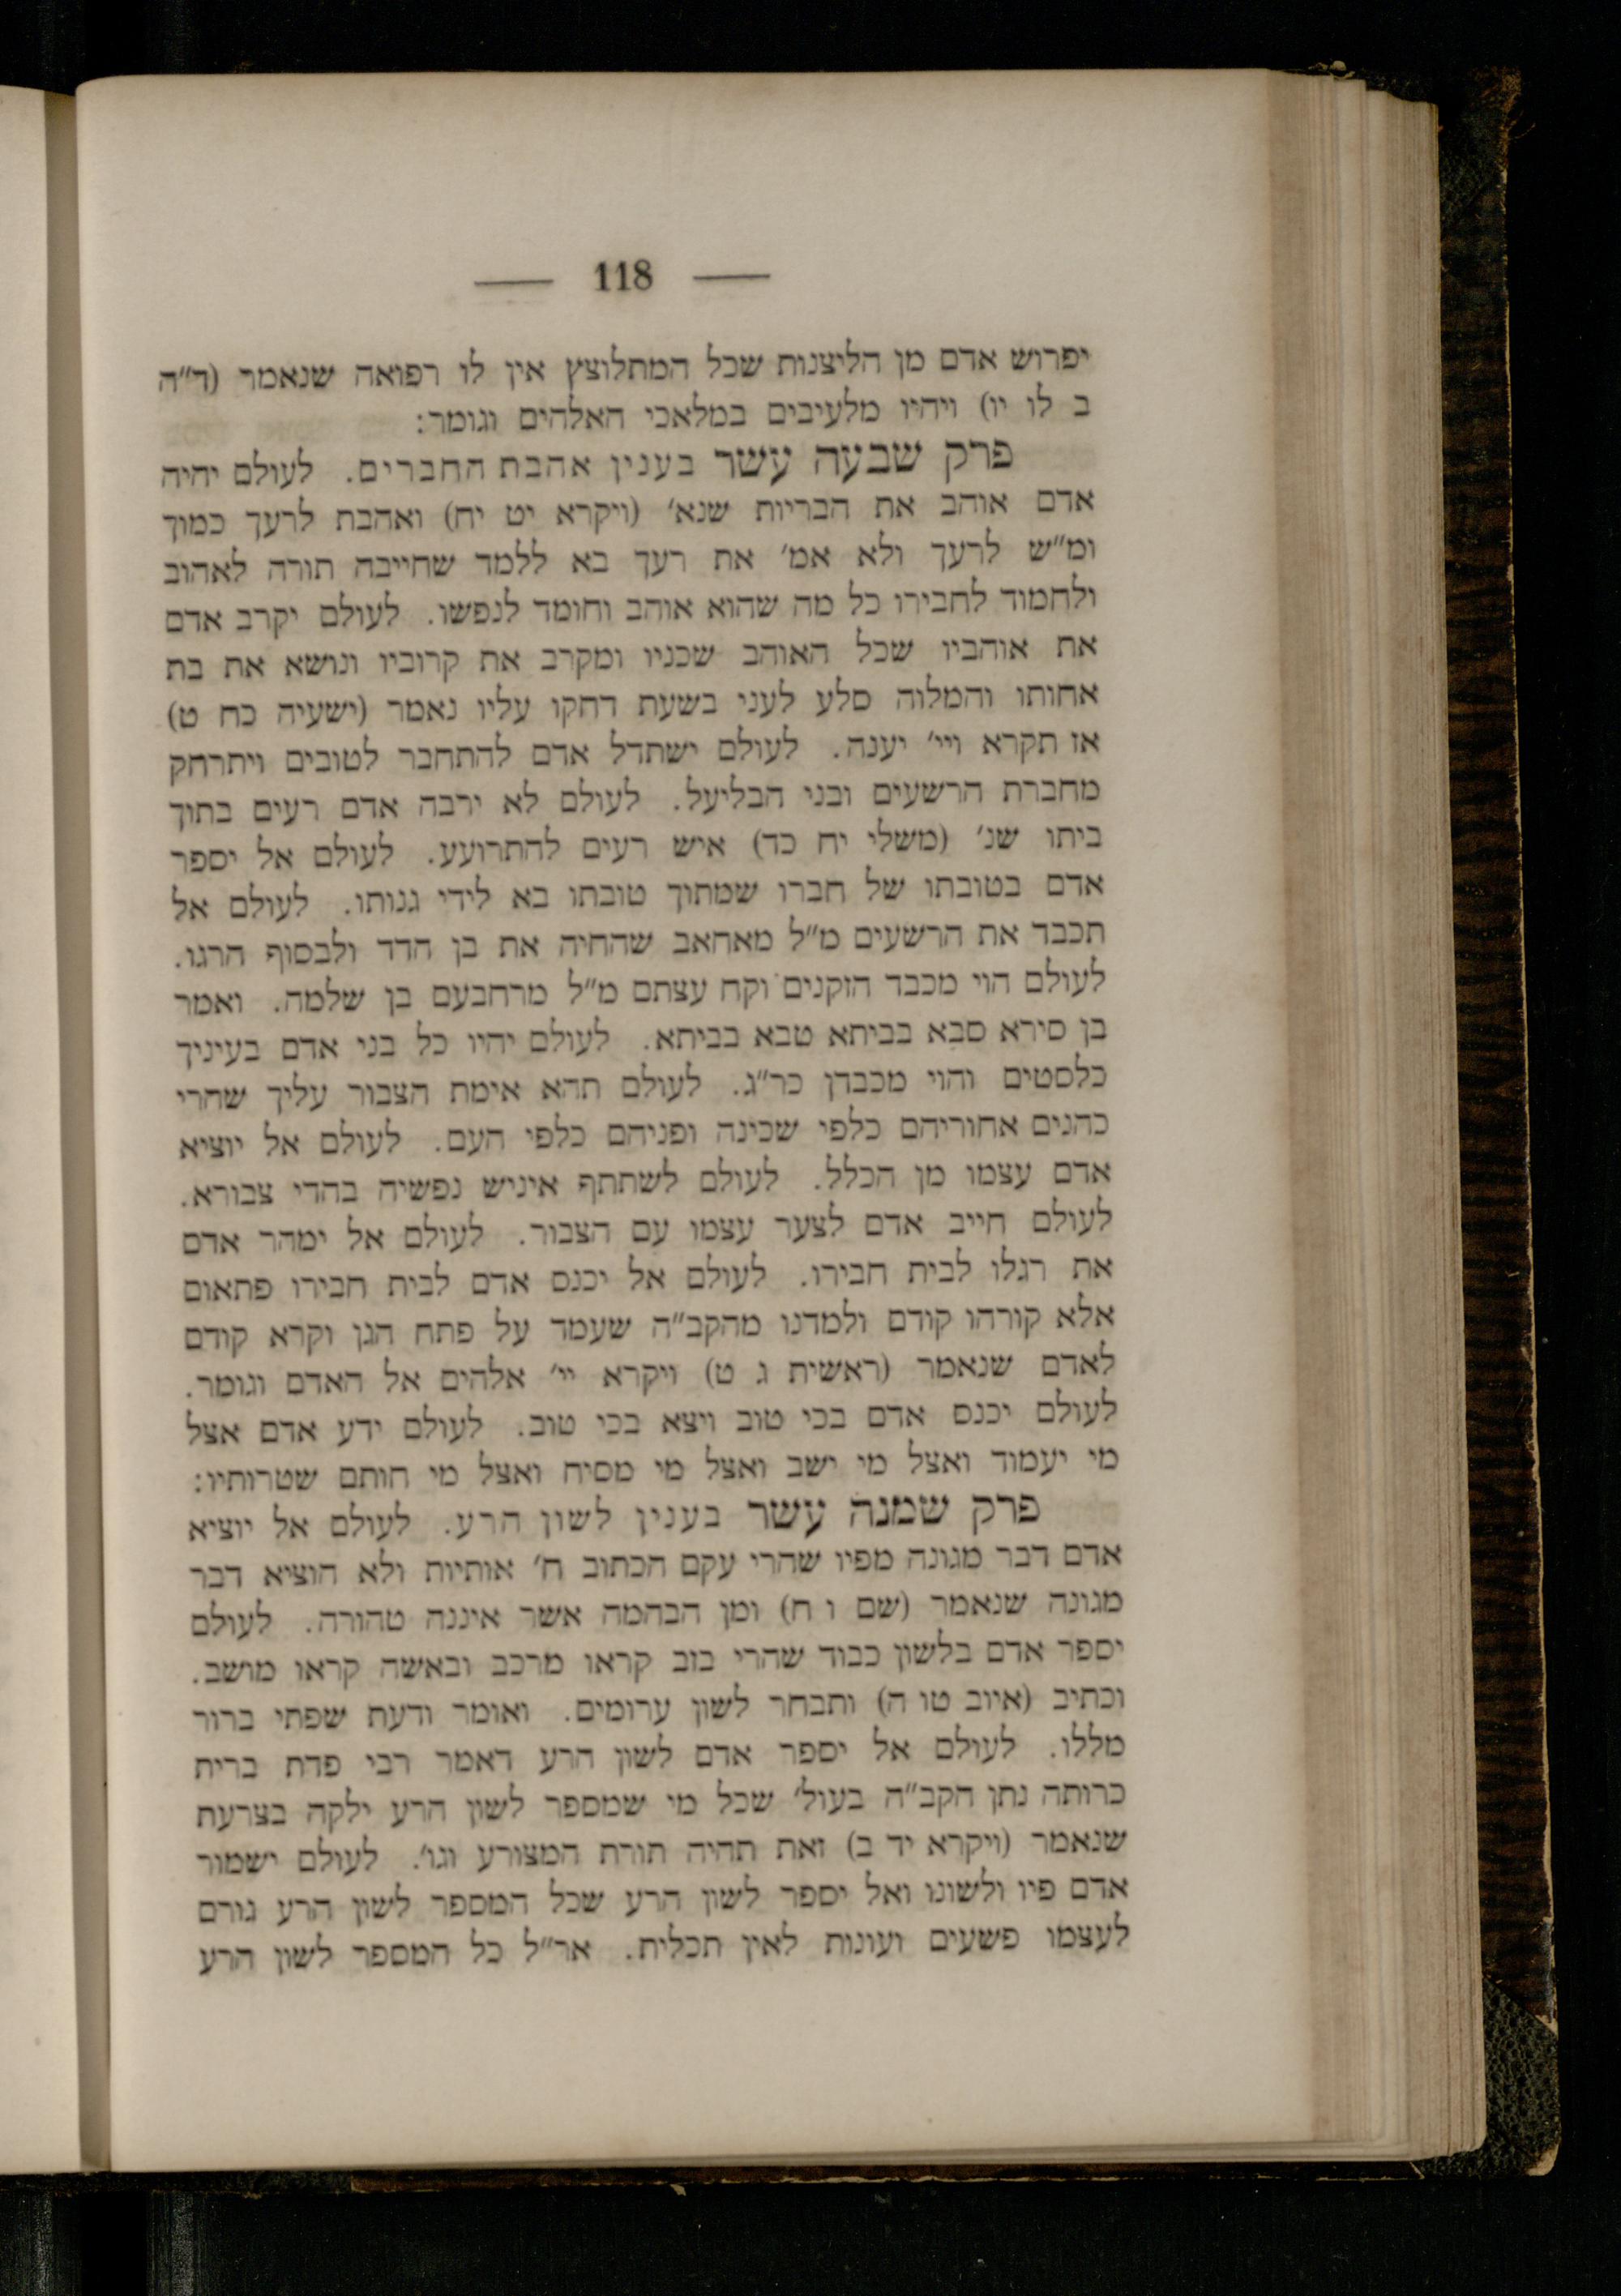 — 118 —
יפרוש אדם מן הליצנות שכל המתלוצץ אין לו רפואה שנאמר (ד״ה
ב לו יו) ויהיו מלעיבים במלאכי האלהים וגומר:
פרק שבעה עשר בענין אהבת החברים. לעולם יהיה
אדם אוהב את הבריות שנא׳ (ויקרא יט יח) ואהבת לרעך כמוך
ומ״ש לרעך ולא אמ׳ את רעך בא ללמד שחייבה תורה לאהוב
ולחמוד לחבירו כל מה שהוא אוהב וחומד לנפשו. לעולם יקרב אדם
את אוהביו שכל האוהב שכניו ומקרב את קרוביו ונושא את בת
אחותו והמלוה סלע לעני בשעת דחקו עליו נאמר (ישעיה כח ט)
אז תקרא ויי׳ יענה. לעולם ישתדל אדם להתחבר לטובים ויתרחק
מחברת הרשעים ובני הבליעל. לעולם לא ירבה אדם רעים בתוך
ביתו שנ׳ (משלי יח כד) איש רעים להתרועע. לעולם אל יספר
אדם בטובתו של חברו שמתוך טובתו בא לידי גנותו. לעולם אל
תכבד את הרשעים מ״ל מאחאב שהחיה את בן הדד ולבסוף הרגו.
לעולם הוי מכבד הזקנים וקח עצתם מ״ל מרחבעם בן שלמה. ואמר
בן סירא סבא בביתא טבא בביתא. לעולם יהיו כל בני אדם בעיניך
כלסטים והוי מכבדן כר״ג. לעולם תהא אימת הצבור עליך שהרי
כהנים אחוריהם כלפי שכינה ופניהם כלפי העם. לעולם אל יוציא
אדם עצמו מן הכלל. לעולם לשתתף איניש נפשיה בהדי צבורא.
לעולם חייב אדם לצער עצמו עם הצבור. לעולם אל ימהר אדם
את רגלו לבית חבירו. לעולם אל יכנס אדם לבית חבירו פתאום
אלא קורהו קודם ולמדנו מהקב״ה שעמד על פתח הגן וקרא קודם
לאדם שנאמר (ראשית ג ט) ויקרא יי׳ אלהים אל האדם וגומר.
לעולם יכנס אדם בכי טוב ויצא בכי טוב. לעולם ידע אדם אצל
מי יעמוד ואצל מי ישב ואצל מי מסיח ואצל מי חותם שטרותיו:
פרק שמנה עשר בענין לשון הרע. לעולם אל יוציא
אדם דבר מגונה מפיו שהרי עקם הכתוב ח׳ אותיות ולא הוציא דבר
מגונה שנאמר (שם ו ח) ומן הבהמה אשר איננה טהורה. לעולם
יספר אדם בלשון כבוד שהרי בזב קראו מרכב ובאשה קראו מושב.
וכתיב (איוב טו ה) ותבחר לשון ערומים. ואומר ודעת שפתי ברור
מללו. לעולם אל יספר אדם לשון הרע דאמר רבי פדת ברית
כרותה נתן הקב״ה בעול׳ שכל מי שמספר לשון הרע ילקה בצרעת
שנאמר (ויקרא יד ב) זאת תהיה תורת המצורע וגו׳. לעולם ישמור
אדם פיו ולשונו ואל יספר לשון הרע שכל המספר לשון הרע גורם
לעצמו פשעים ועונות לאין תכלית. אר״ל כל המספר לשון הרע